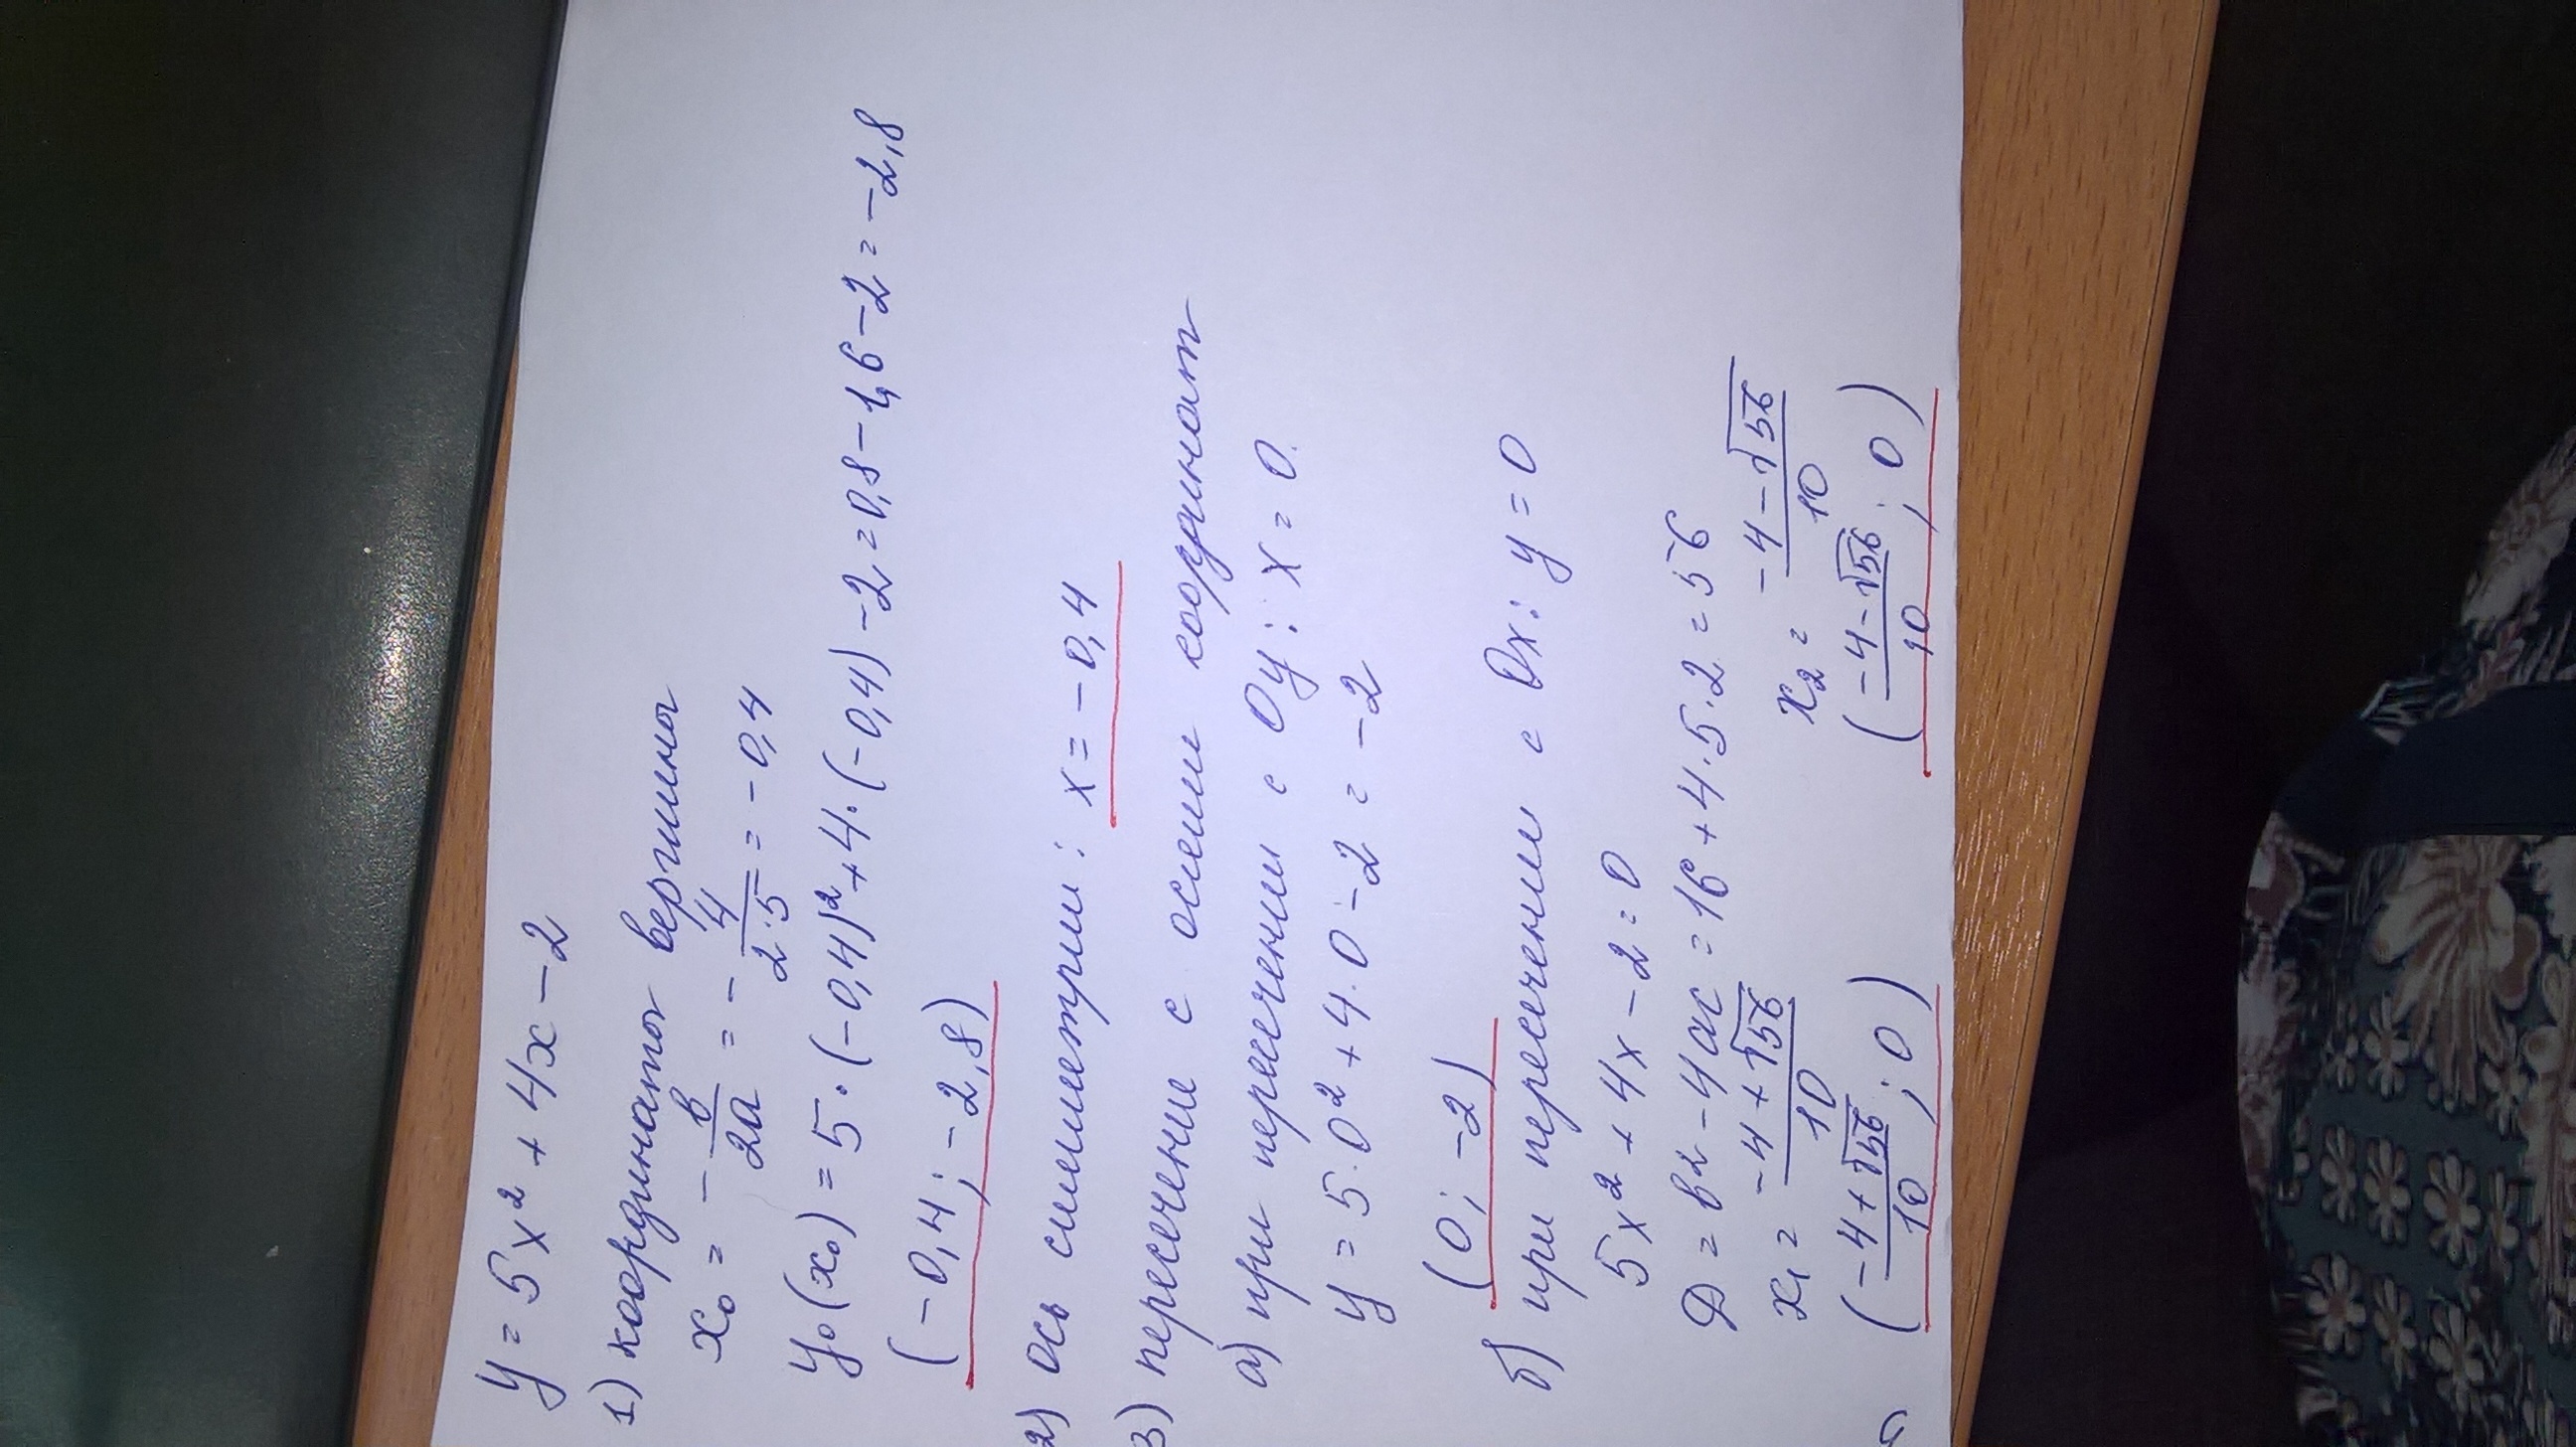 y = 5x² + 4x - 2
1) координаты вершины
x₀ = - в/2a = - 4/2·5 = - 0,4
y₀(x₀) = 5·(-0,4)² + 4·(-0,4) - 2 = 0,8 - 1,6 - 2 = -2,8
(-0,4; -2,8)
2) ось симметрии: x = -0,4
3) пересечение с осями координат
а) при пересечении с Oy: x = 0
y = 5·0² + 4·0 - 2 = -2
(0; -2)
б) при пересечении с Ox: y = 0
5x² + 4x - 2 = 0
D = в² - 4ac = 16 + 4·5·2 = 56
x₁ = -4 + √56/10 x₂ = -4 - √56/10
(-4 + √56/10; 0) (-4 - √56/10; 0)